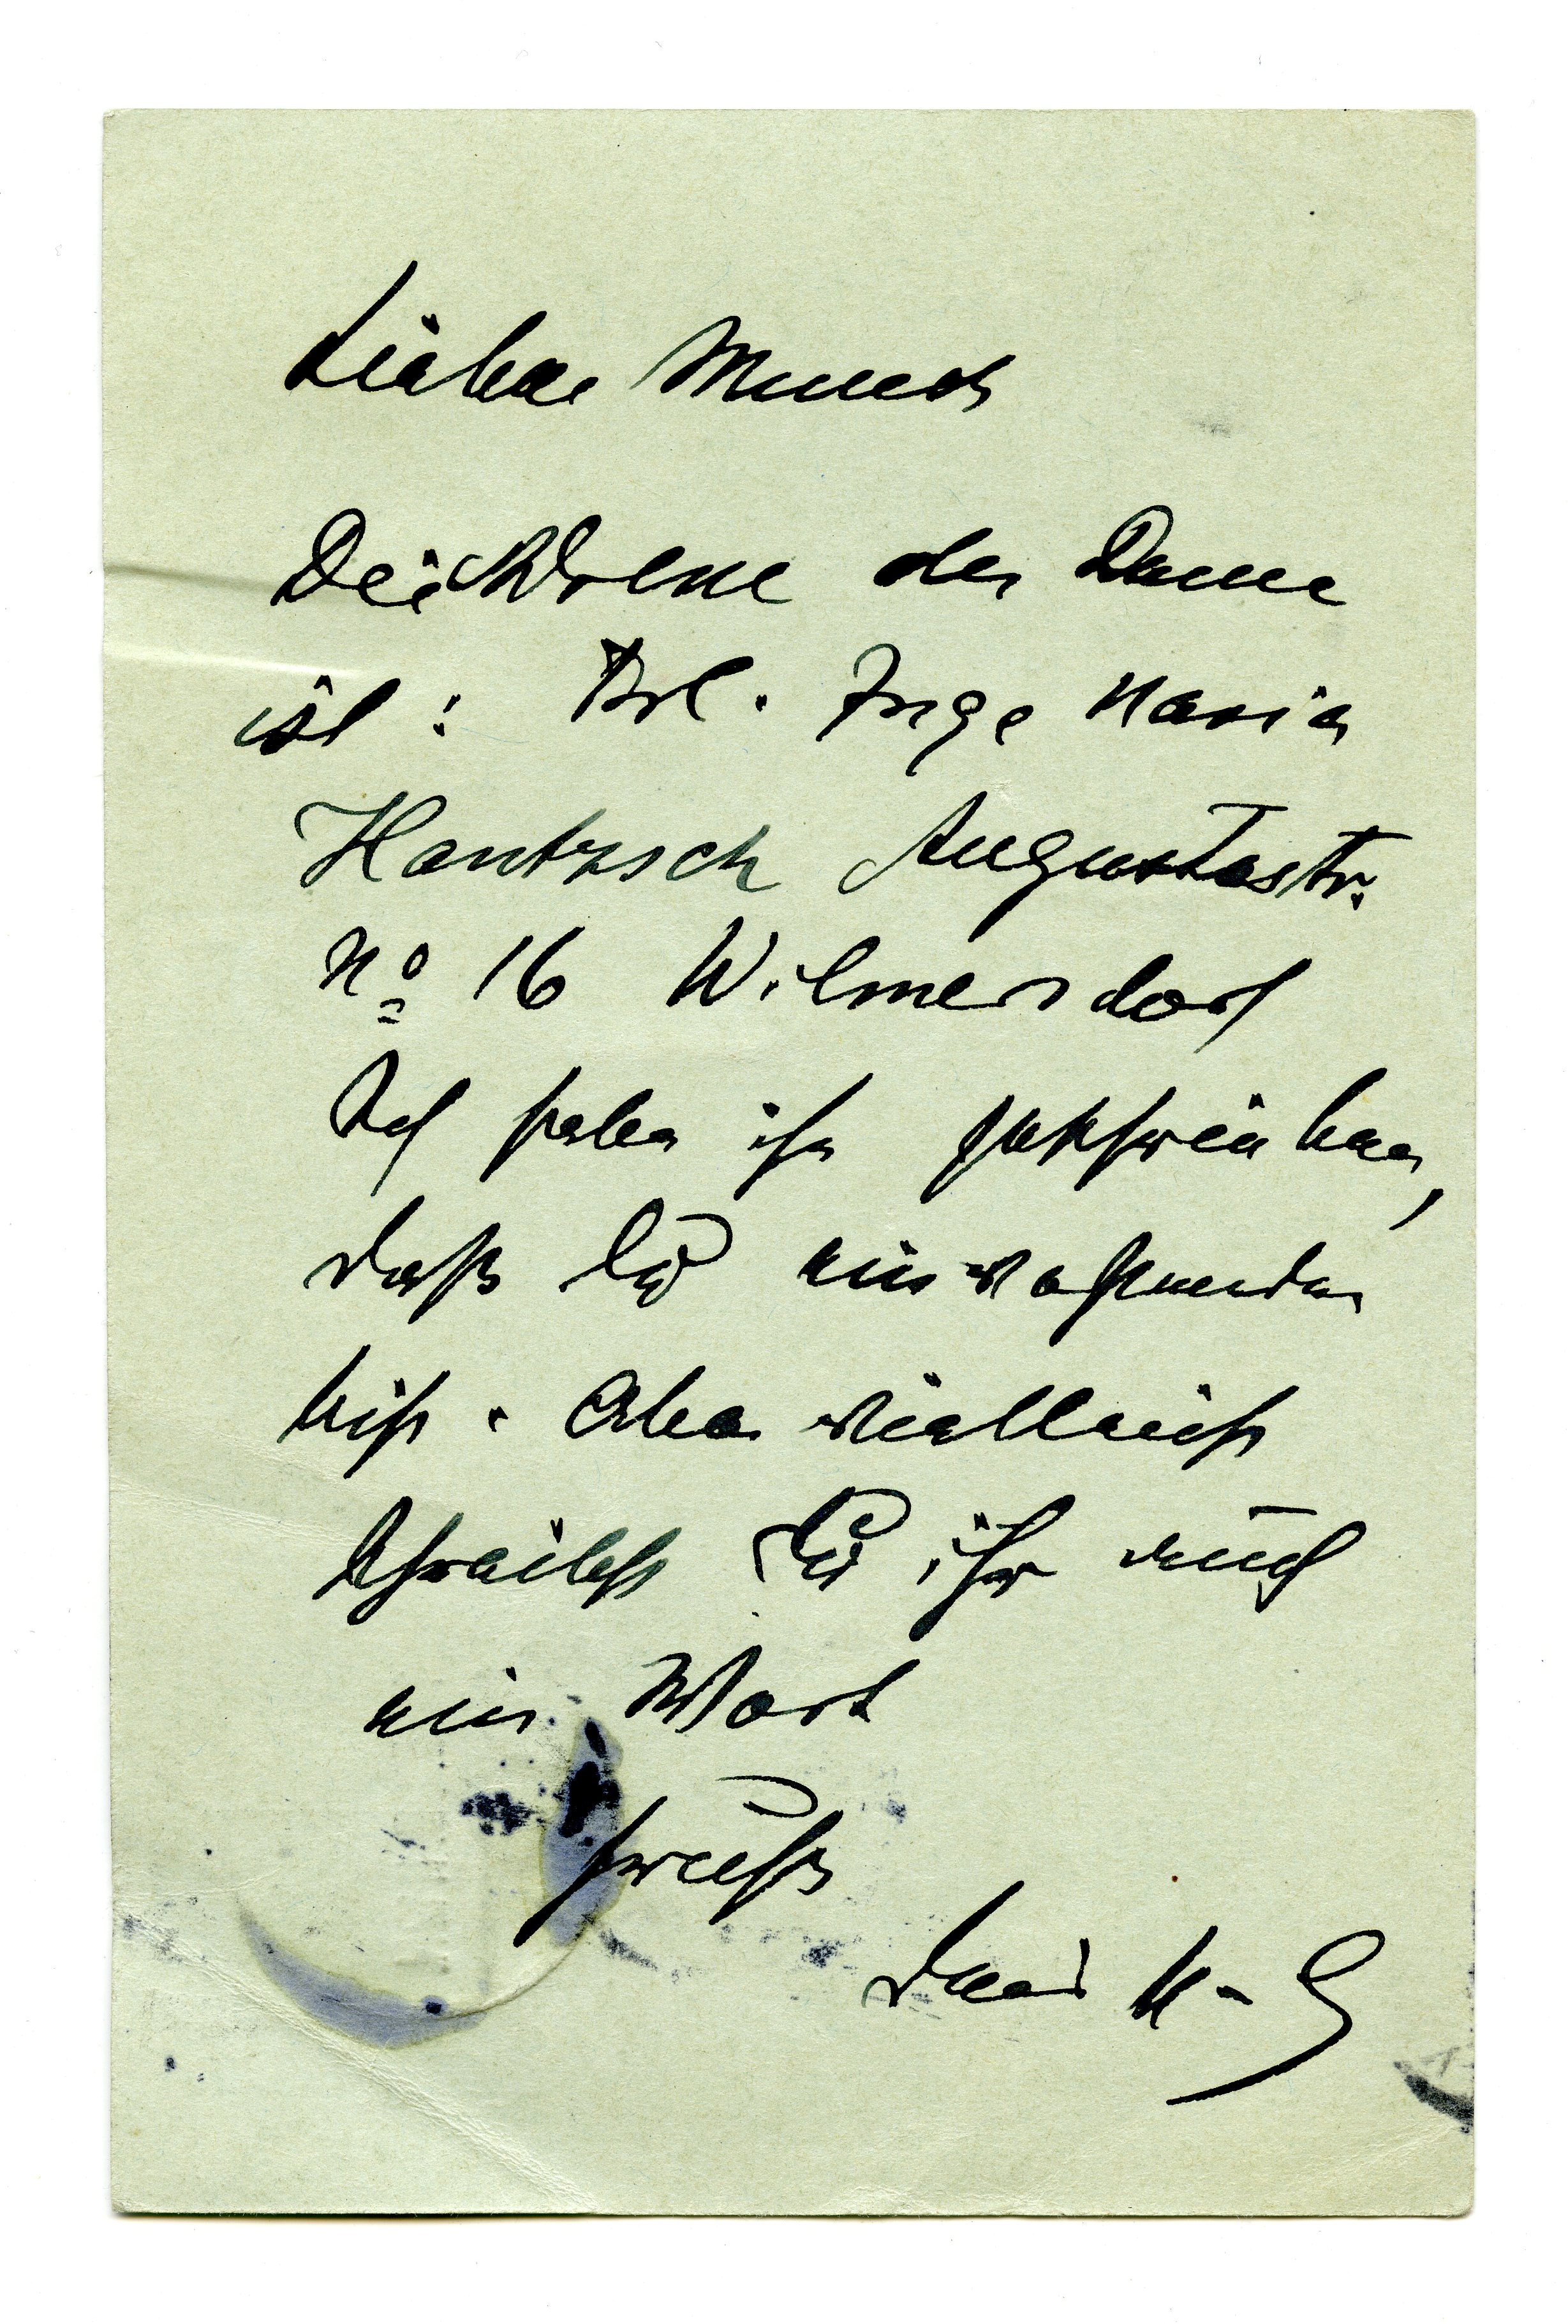 Lieber Munch
Die Adresse der Dame
ist : Frl. Inge Maria
Hantzsch Augustastr.
No 16 Wilmersdorf
Ich habe ihr geschrieben,
daß Du einverstanden
bist . Aber vielleicht
schreibst Du ihr auch
ein Wort
herzlichst
Dein K-G